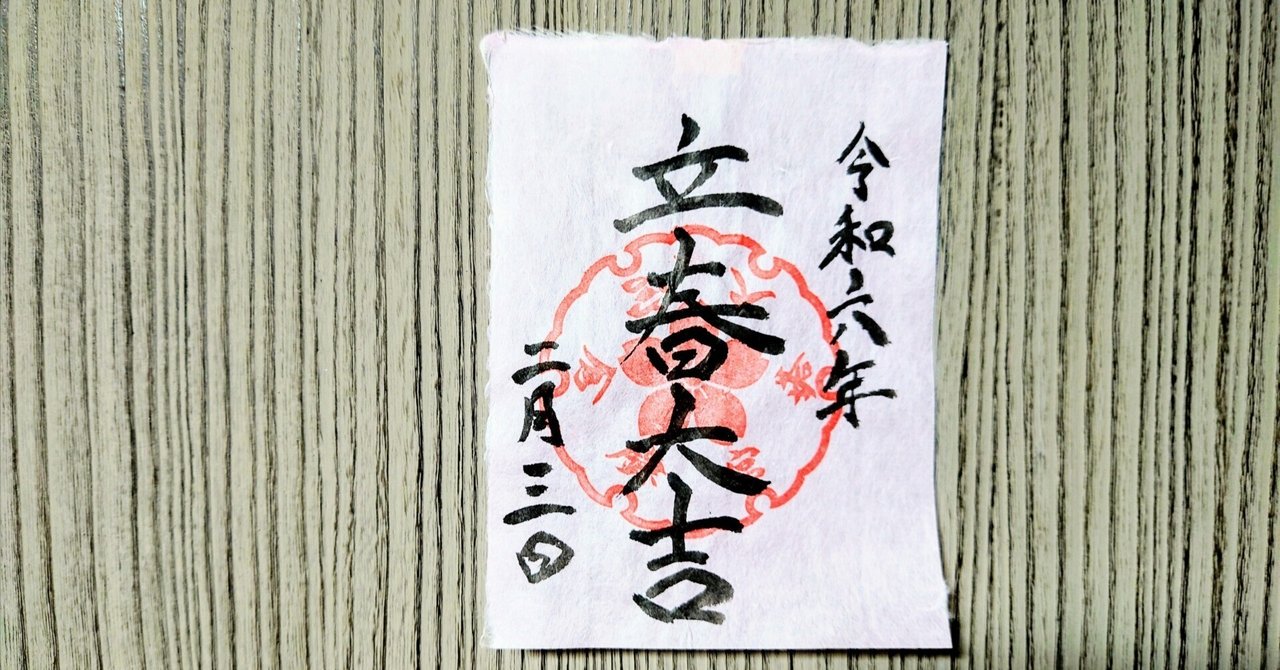 令和六年
立春大吉
二月三日